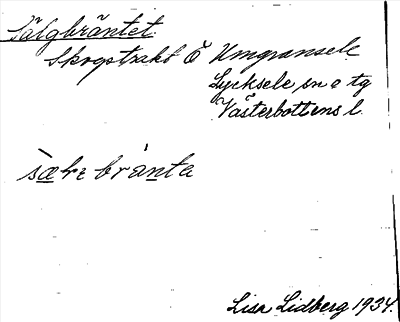 Sälgbräntet
Skogstrakt Ö Umgransele
Lycksele sn o tg
Västerbottens l.
Lisa Lidberg 1934.